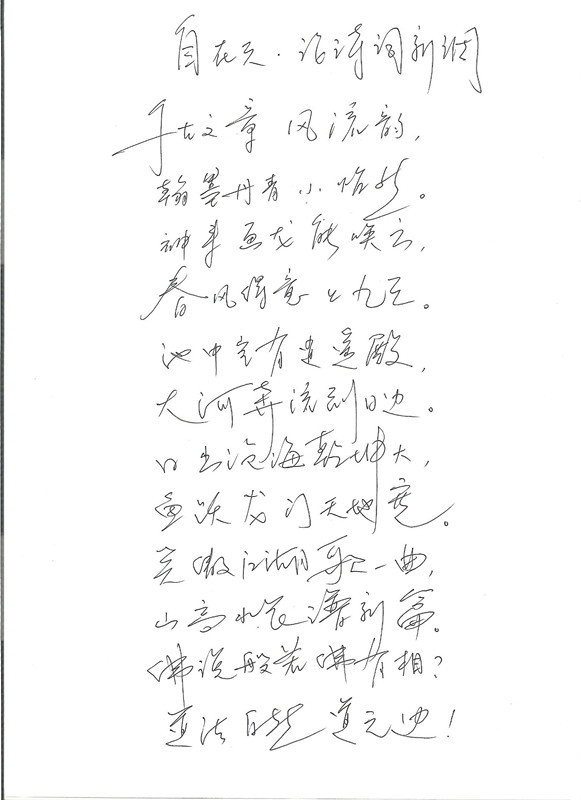 自在天·论诗词新调
千古文章风流韵，
翰墨丹青小恬然。
神来画龙能唤云，
春风得意上九天。
池中宝有道遥殿，
大河奔流到日边。
日出沧海乾坤大，
鱼跃龙门天地宽。
笑傲江湖歌一曲，
山高水长谱新篇。
佛说般若佛有相？
道法自然道无边！